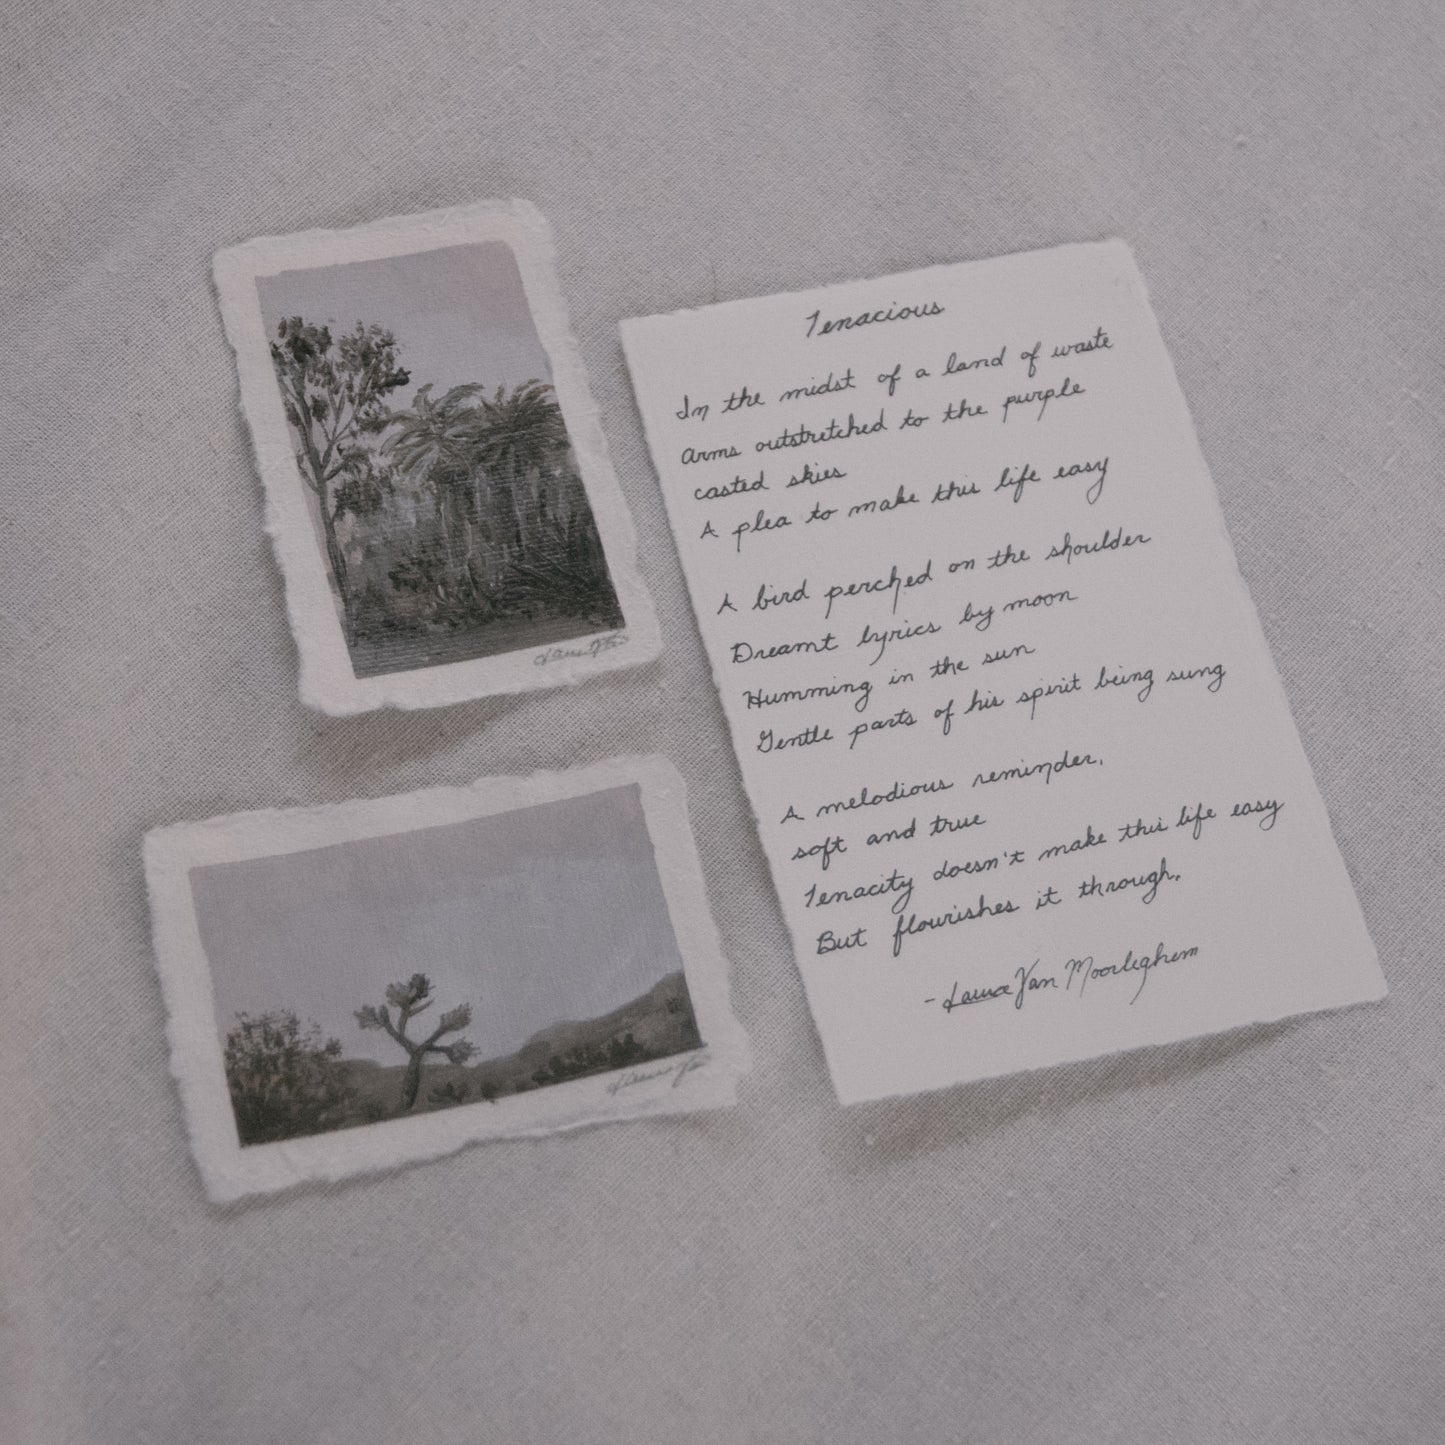 Tenacious
In the midst of a land of waste
Arms outstretched to the purple
casted skies
A plea to make this life easy
A bird perched on the shoulder
Dreamt lyrics by moon
Humming in the sun
Gentle parts of his spirit being sung
A melodious reminder,
soft and true
Tenacity doesn't make this life easy
But flourishes it through.
- Laura Van Moorleghem